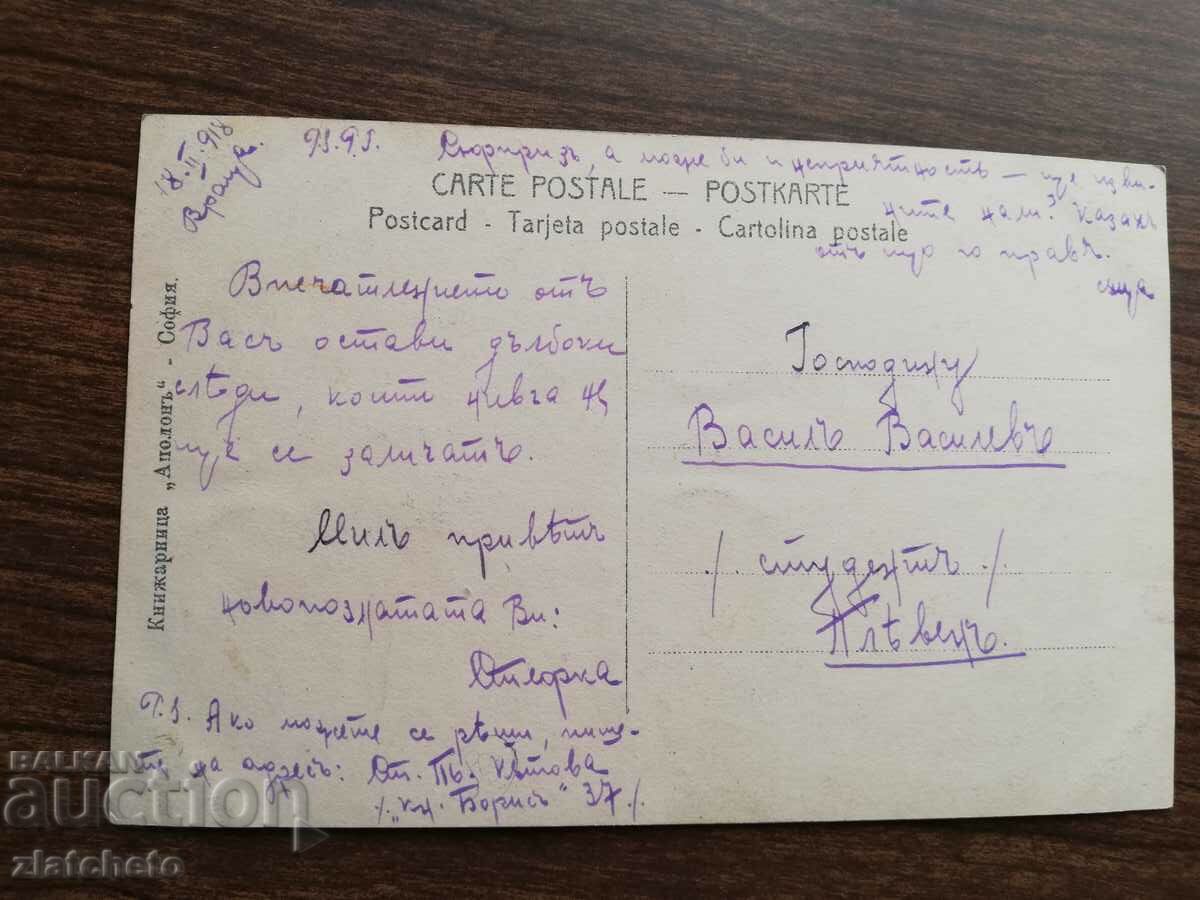 18.II.918
Враца.
P.S. P.S. Сюрпризъ, а може би и неприятность — ще изви-
ните нали? Казахъ
отъ що го правъ.
съща
CARTE POSTALE — POSTKARTE
Postcard - Tarjeta postale - Cartolina postale
Книжарница „Аполонъ“ - София.
Впечатлението отъ
Васъ остави дълбоки
слѣди, които нивга не
ще се заличатъ.
Милъ привѣтъ
новопознатата Ви:
P.S. Ако можете се рѣши, пише-
те на адресъ: Цвѣтова
/. „Кн. Борисъ“ 37 /.
Господину
Василъ Василевъ
/. студентъ /.
Плѣвенъ.
BALKAN
auction
zlatcheto